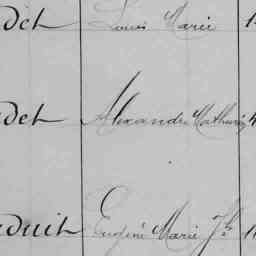 det Louis Marie 1
det Alexandre Mathurin 4
duit Eugène Marie Jh 1